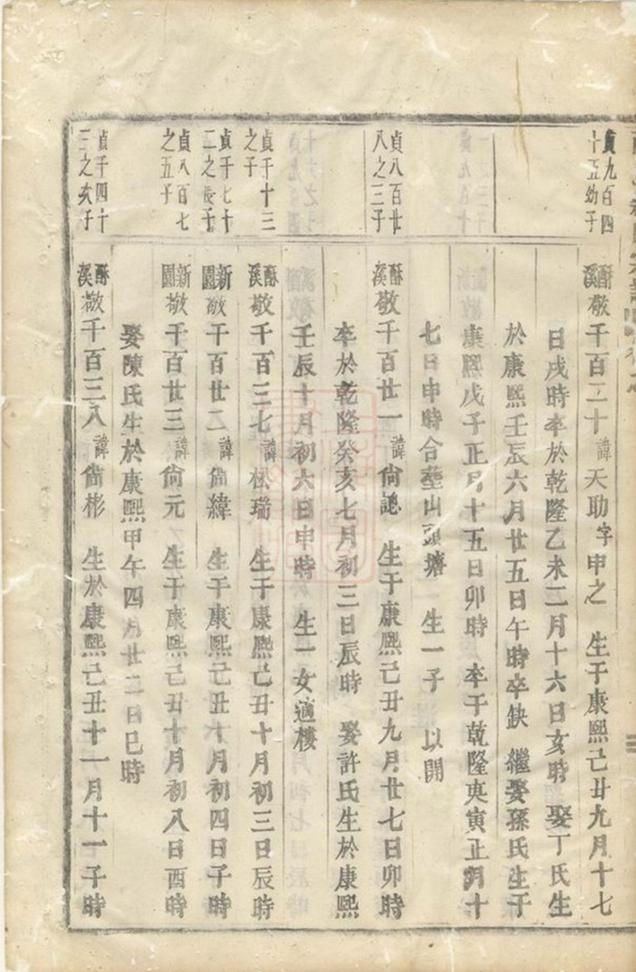 貞九百四十五幼子
酥溪敬千百二十諱天助字申之　生于康熙己丑九月十七
日戌時卒於乾隆乙未二月十六日亥時　娶丁氏生
於康熙壬辰六月廿五日午時卒缺　繼娶孫氏生于
康熙戊子正月十五日卯時　卒于乾隆庚寅正月十
七日申時合塟山頭塘　生一子　以開
貞八百廿八之三子
酥溪敬千百廿一諱尙認　生于康熙己丑九月廿七日卯時
卒於乾隆癸亥七月初三日辰時　娶許氏生於康熙
壬辰十月初六日申時　生一女適樓
貞千十三之子
酥溪敬千百三七諱松瑞　生于康熙己丑十月初三日辰時
貞千七十二之長子
新園敬千百廿二諱尙緯　生于康熙己丑十月初四日子時
貞八百七之五子
新園敬千百廿三諱尙元　生于康熙己丑十月初八日酉時
娶陳氏生於康熙甲午四月廿二日巳時
貞千四十三之次子
酥溪敬千百三八諱尙彬　生於康熙己丑十一月十一子時